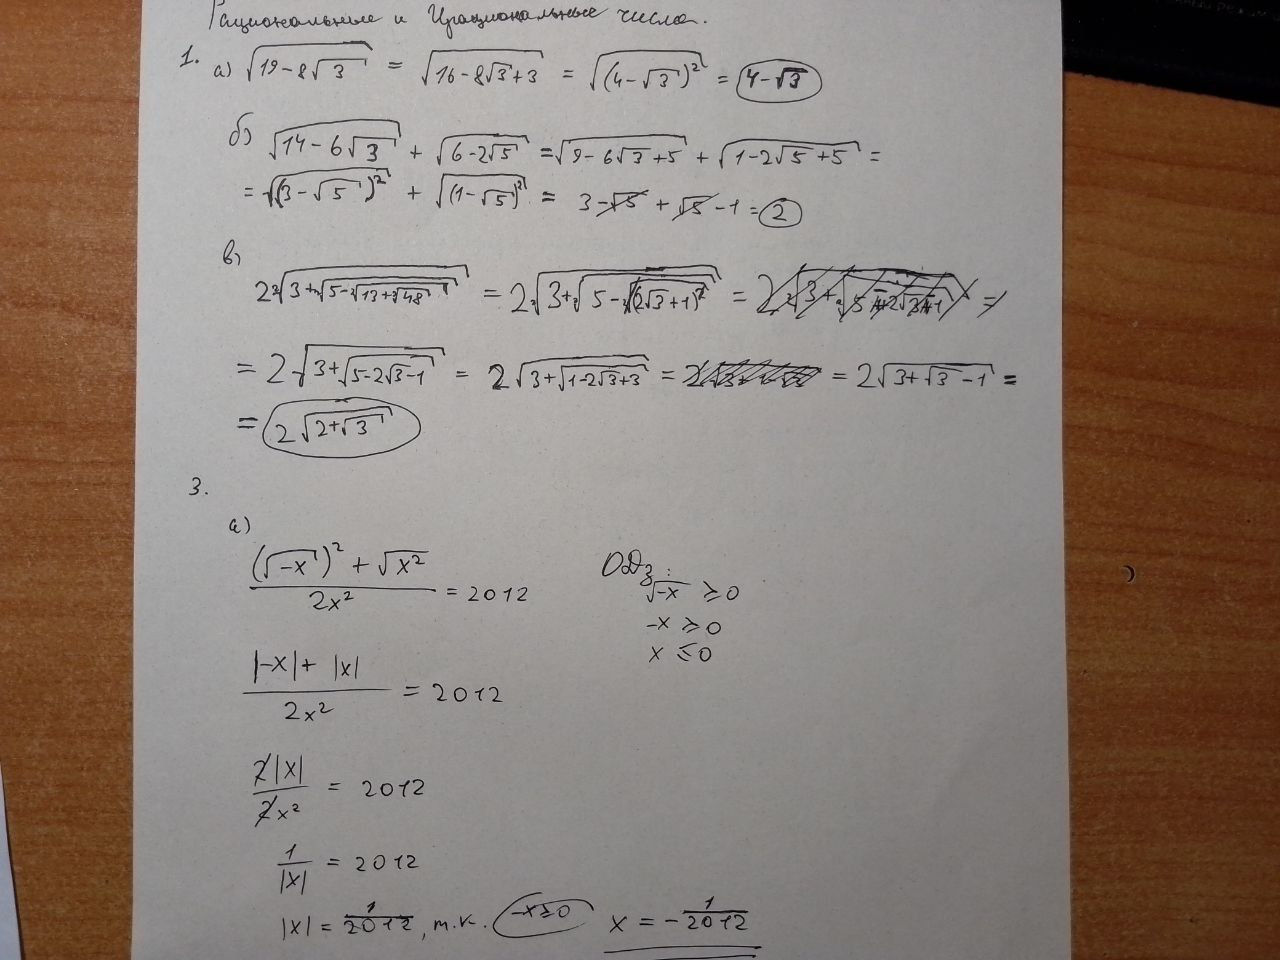 Рациональные и Иррациональные числа.
1. а) √(19-8√3) = √(16-8√3+3) = √((4-√3)²) = 4-√3
б) √(14-6√3) + √(6-2√5) = √(9-6√3+5) + √(1-2√5+5) =
= √((3-√5)²) + √((1-√5)²) = 3-√5 + √5-1 = 2
в)
2√(3+√(5-√(13+√48))) = 2√(3+√(5-√((2√3+1)²))) =
= 2√(3+√(5-2√3-1)) = 2√(3+√(1-2√3+3)) = = 2√(3+√3-1) =
= 2√(2+√3)
3.
а)
((√-x)² + √x²)/(2x²) = 2012
ОДЗ:
√-x ≥ 0
-x ≥ 0
x ≤ 0
(|-x| + |x|)/(2x²) = 2012
2|x|/2x² = 2012
1/|x| = 2012
|x| = 1/2012, т.к. -x≥0 x = -1/2012